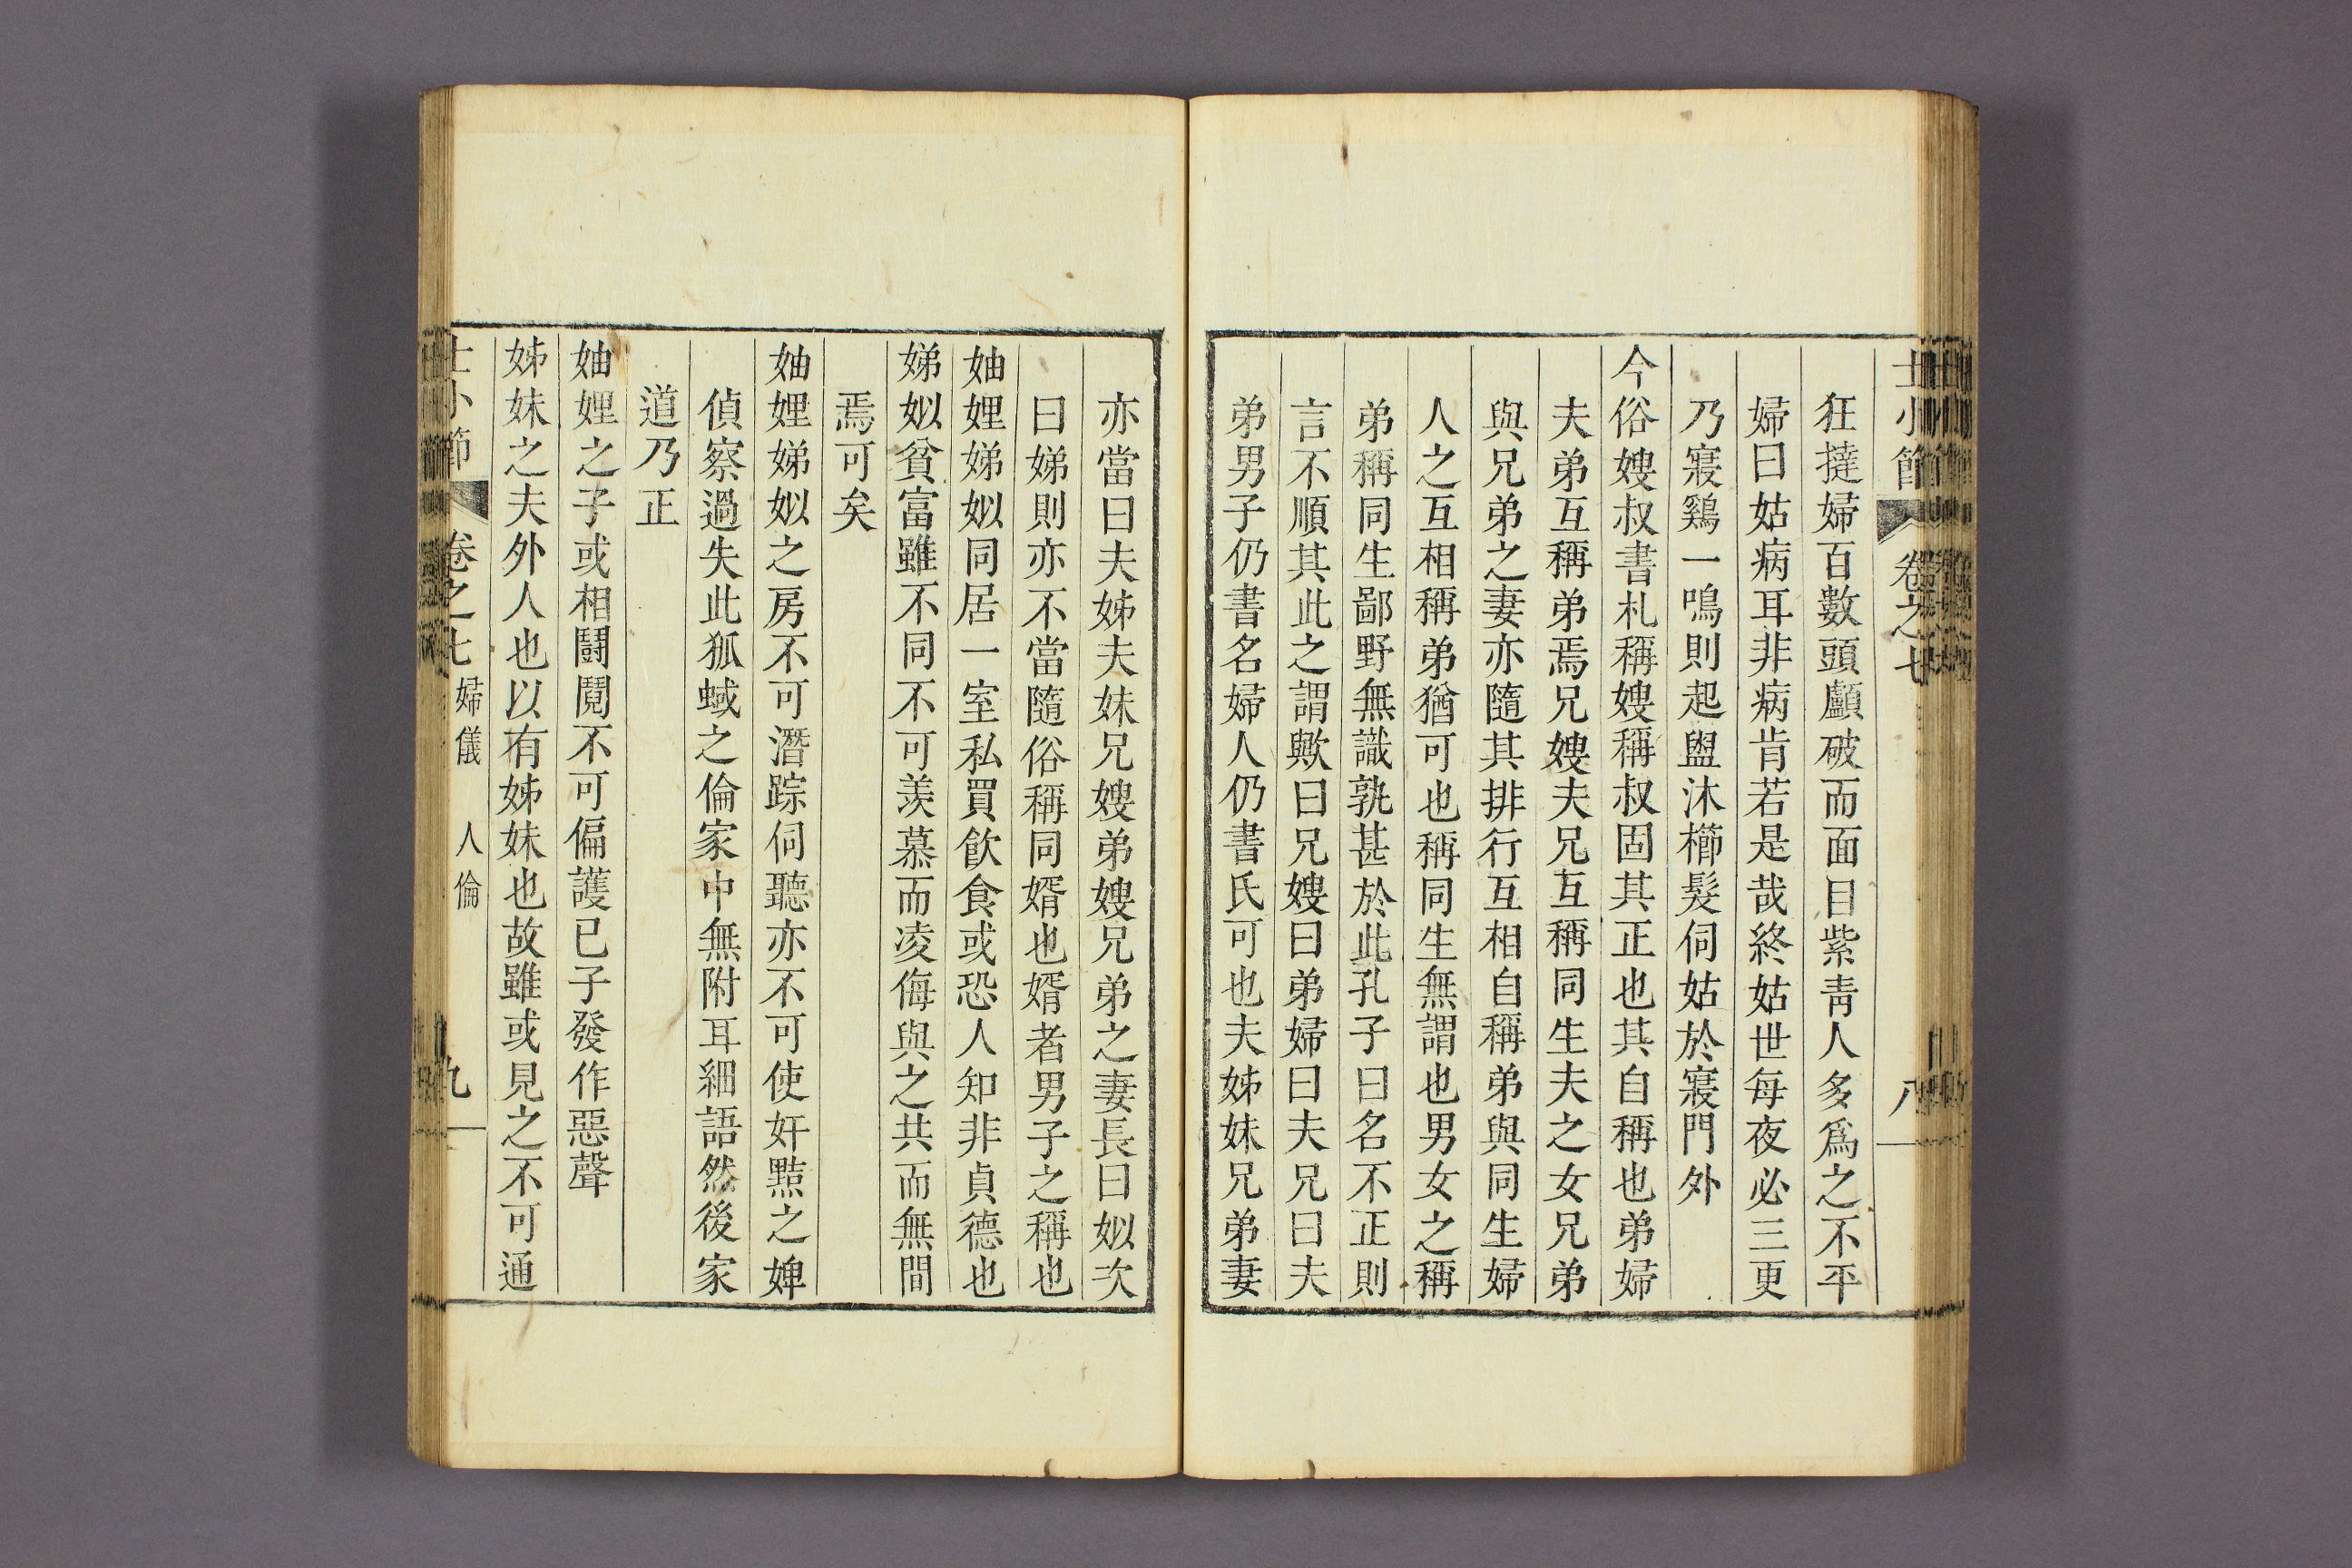 士小節 卷之七 八
狂撻婦百數頭顱破而面目紫靑人多爲之不平
婦曰姑病耳非病肯若是哉終姑世每夜必三更
乃寢鷄一鳴則起盥沐櫛髮伺姑於寢門外
今俗嫂叔書札稱嫂稱叔固其正也其自稱也弟婦
夫弟互稱弟焉兄嫂夫兄互稱同生夫之女兄弟
與兄弟之妻亦隨其排行互相自稱弟與同生婦
人之互相稱弟猶可也稱同生無謂也男女之稱
弟稱同生鄙野無識孰甚於此孔子曰名不正則
言不順其此之謂歟曰兄嫂曰弟婦曰夫兄曰夫
弟男子仍書名婦人仍書氏可也夫姊妹兄弟妻
亦當曰夫姊夫妹兄嫂弟嫂兄弟之妻長曰姒次
曰娣則亦不當隨俗稱同婿也婿者男子之稱也
妯娌娣姒同居一室私買飮食或恐人知非貞德也
娣姒貧富雖不同不可羨慕而凌侮與之共而無間
焉可矣
妯娌娣姒之房不可潛踪伺聽亦不可使奸黠之婢
偵察過失此狐蜮之倫家中無附耳細語然後家
道乃正
妯娌之子或相鬪鬩不可偏護已子發作惡聲
姊妹之夫外人也以有姊妹也故雖或見之不可通
士小節 卷之七 婦儀 人倫 九